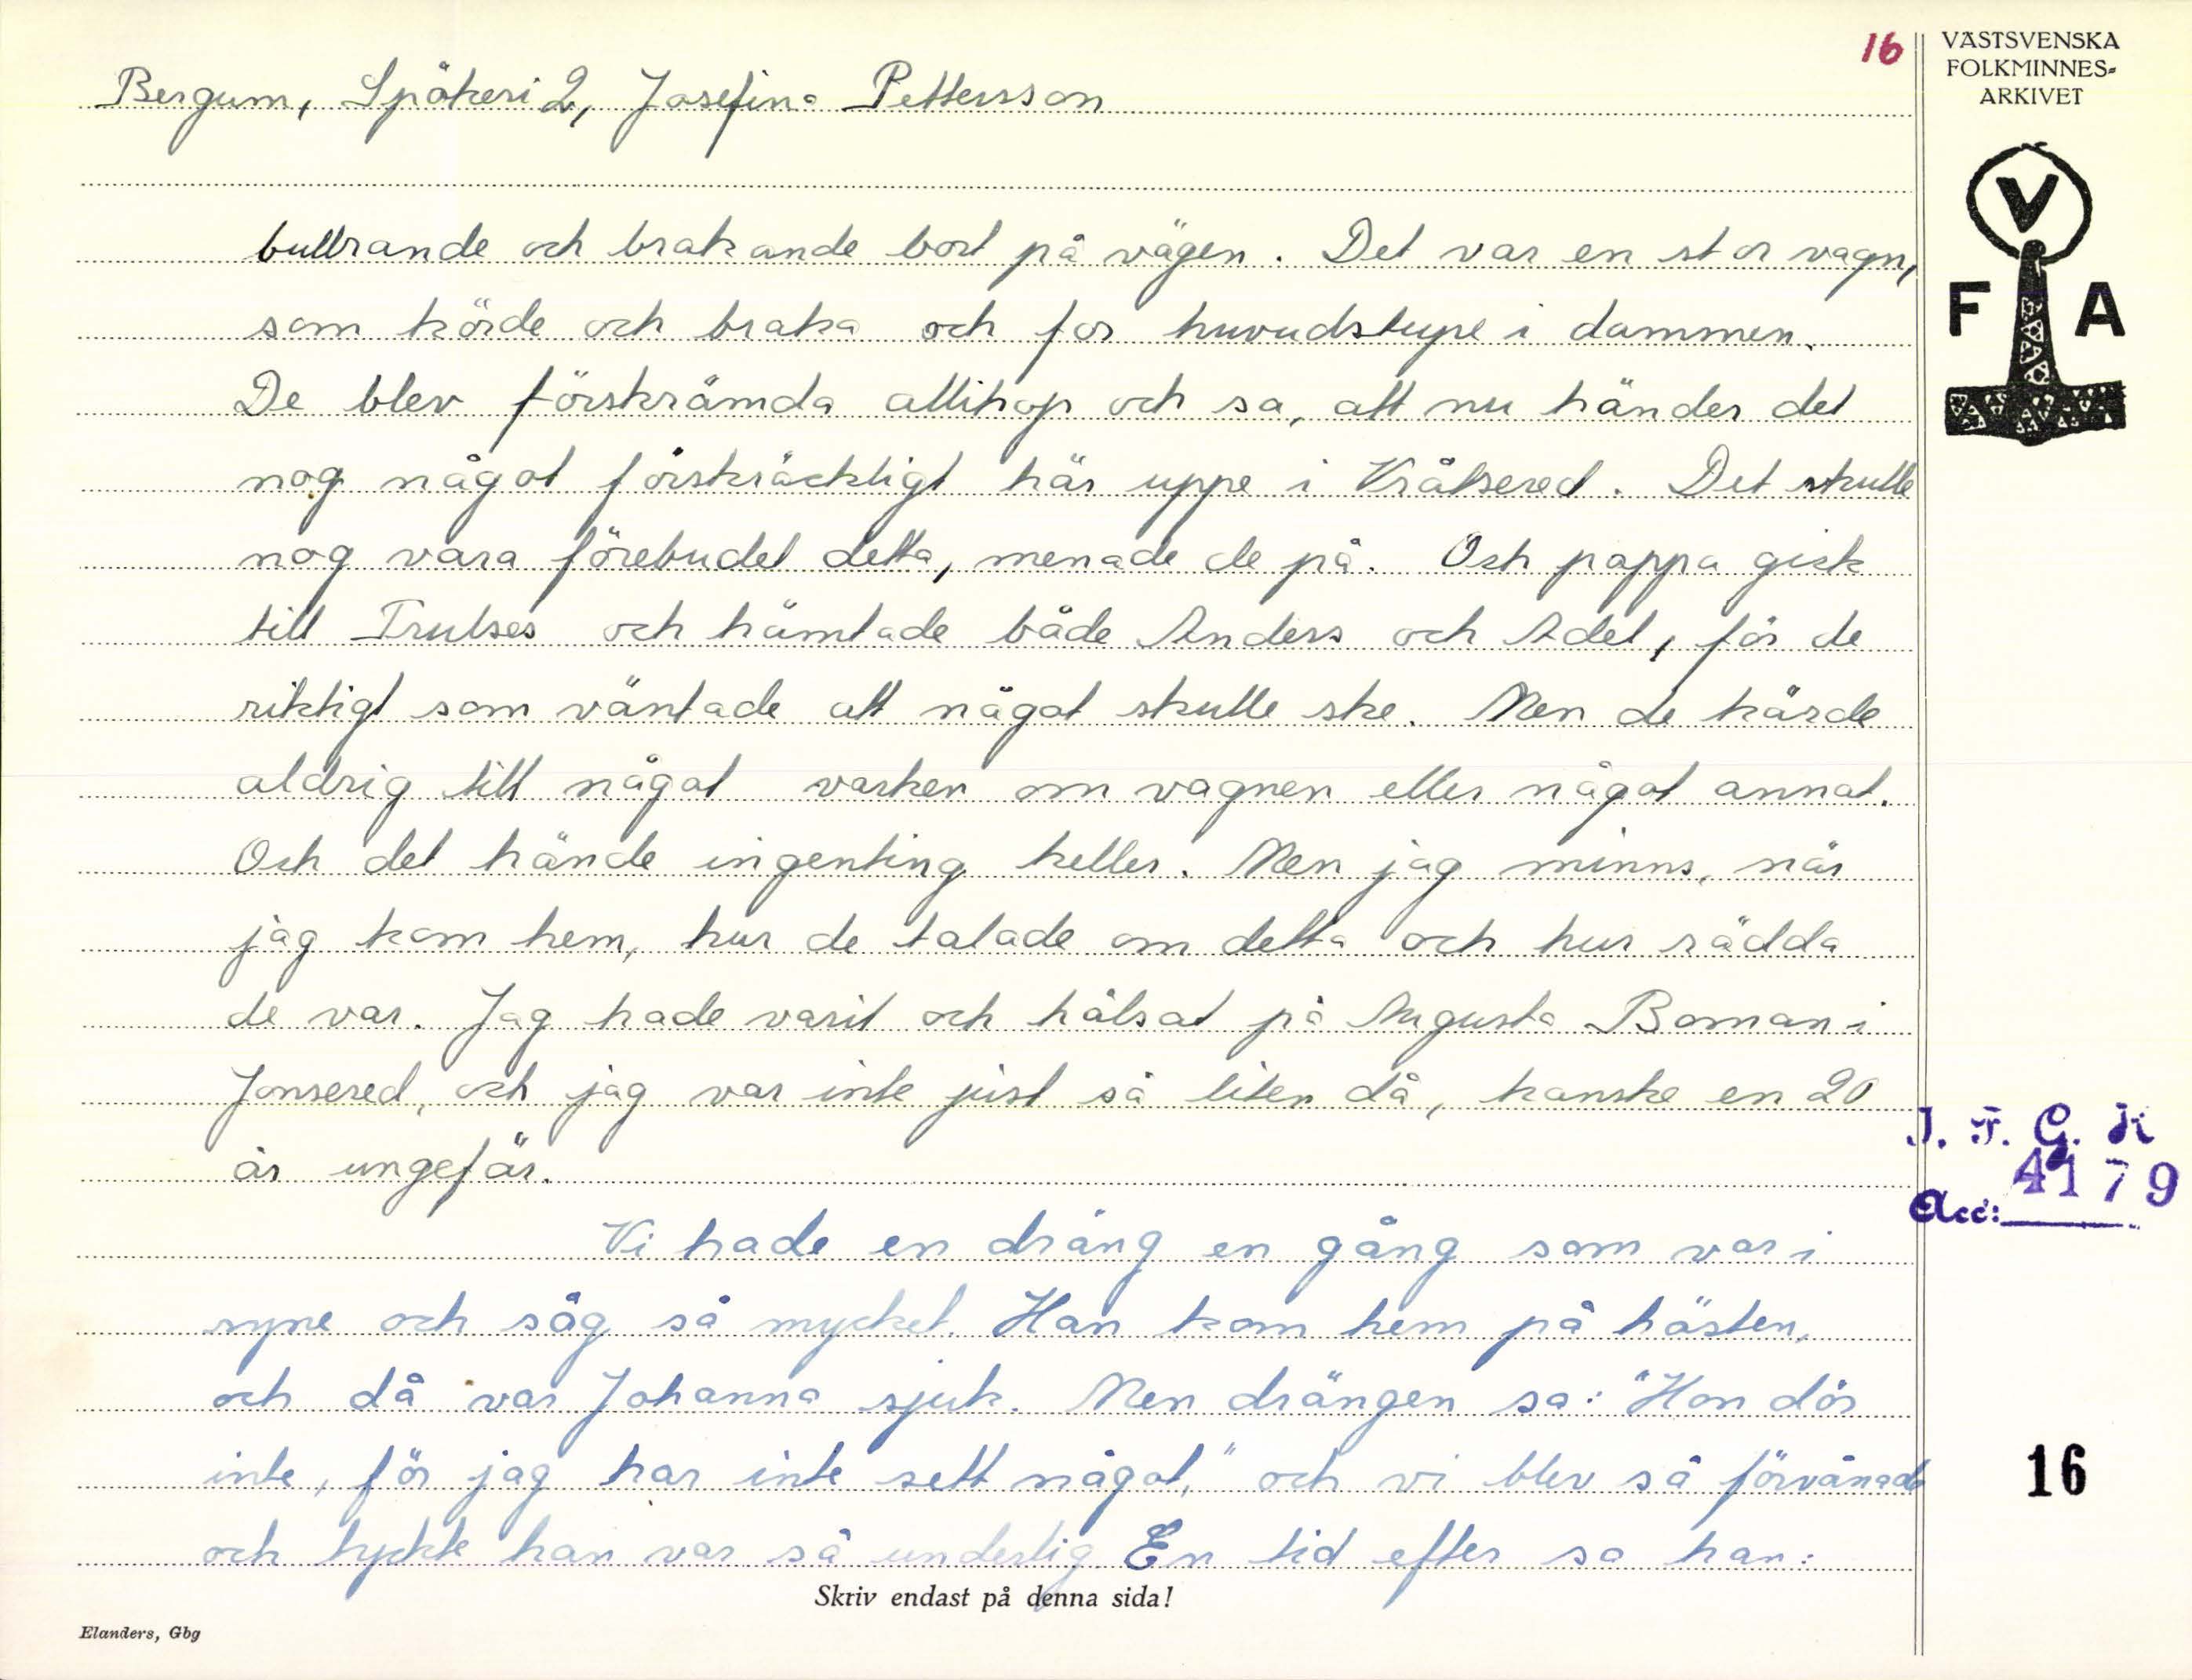 16
VÄSTSVENSKA
FOLKMINNES-
ARKIVET
Bergum, Spökeri 2, Josefina Pettersson
V
F A
bullrande och brakande bort på vägen. Det var en stor vagn,
som körde och braka och for huvudstupe i dammen.
De blev förskrämda allihop och sa, att nu händer det
nog något förskräckligt här uppe i Kråksered. Det skulle
nog vara förebudet detta, menade de på. Och pappa gick
till Trulses och hämtade både Anders och Adel, för de
riktigt som väntade att något skulle ske. Men de hörde
aldrig till något varken om vagnen eller något annat.
Och det hände ingenting heller. Men jag minns, när
jag kom hem, hur de talade om detta och hur rädda
de var. Jag hade varit och hälsat på Augusta Boman i
Jonsered, och jag var inte just så liten då, kanske en 20
år ungefär.
I. F. G. K
4179
Acc:
Vi hade en dräng en gång som var i
syne och såg så mycket. Han kom hem på hösten,
och då var Johanna sjuk. Men drängen sa: "Hon dör
inte, för jag har inte sett något," och vi blev så förvånade
och tyckte han var så underlig. En tid efter sa han:
16
Skriv endast på denna sida!
Elanders, Gbg